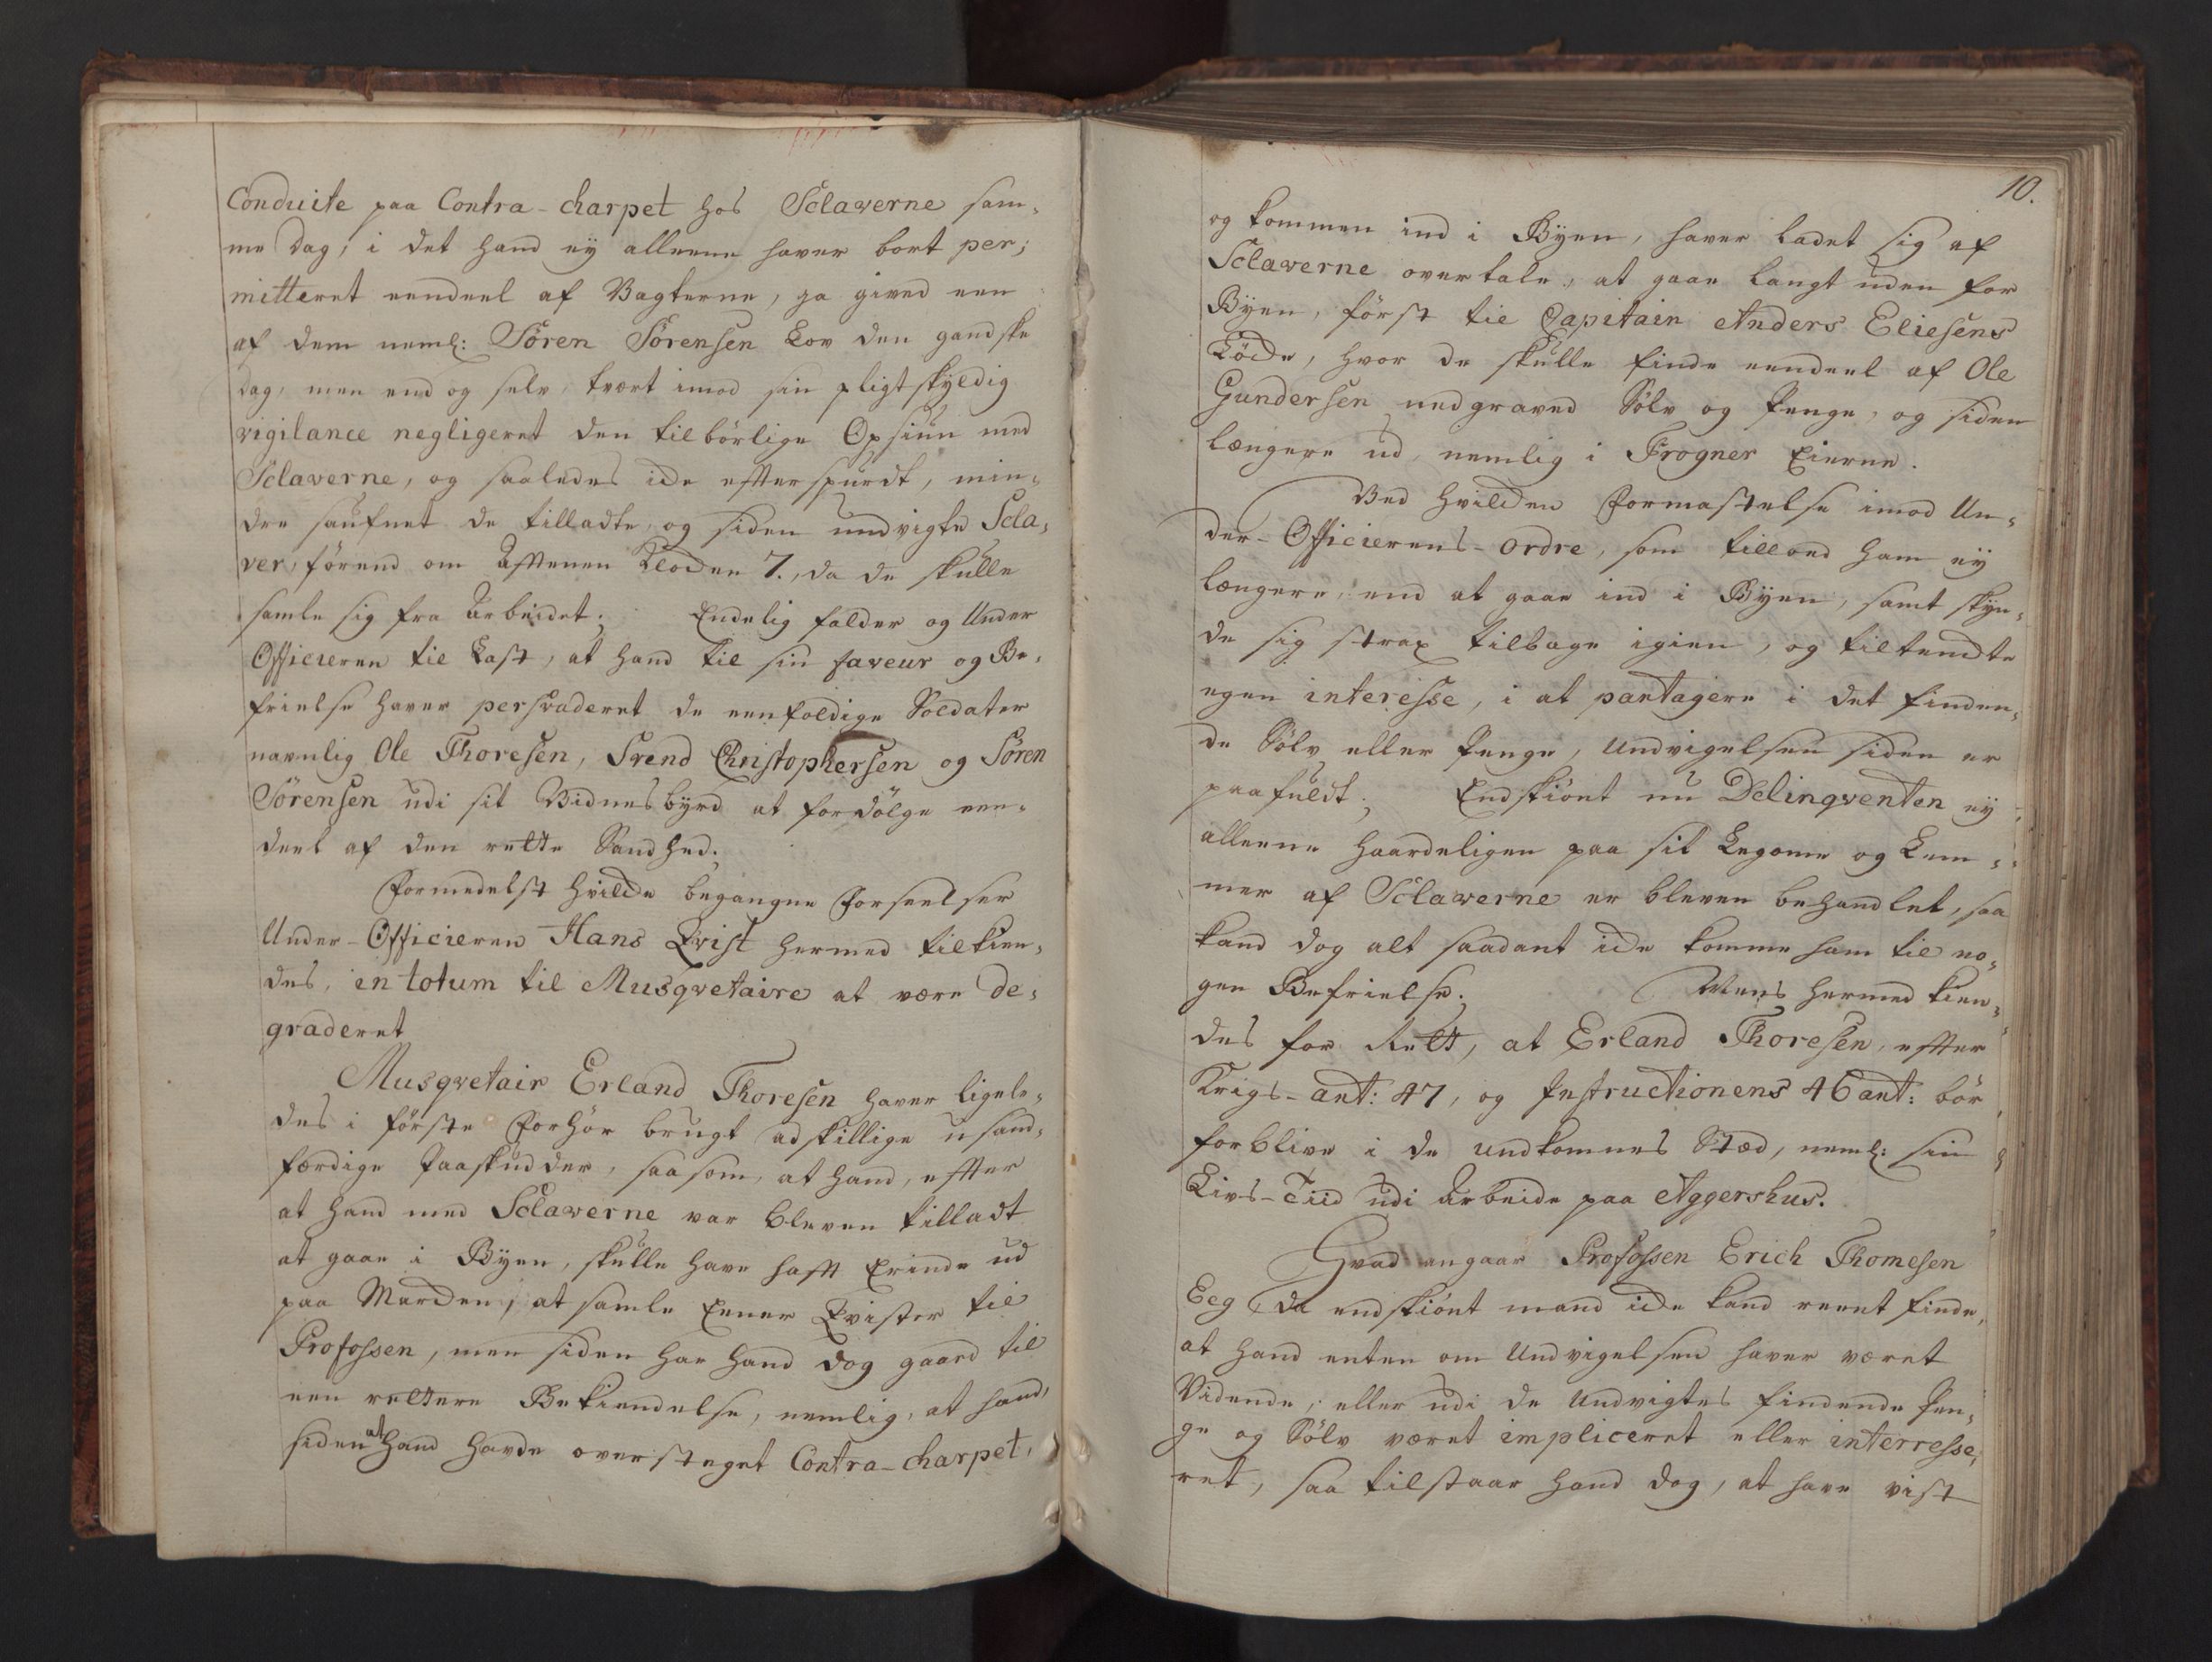 Conduite paa Contra-charpet hos Sclaverne sam-
me Dag, i det hand ey alleene haver bort per-
mitteret eendeel af Vagterne, ja gived een
af dem neml: Sören Sörensen Lov den gandske
Dag, men end og selv tvært imod sin pligtskyldig
vigilance negligeret den tilbörlige Opsiun med
Sclaverne, og saaledes icke efterspurdt, min-
dre saufnet de tilladte og siden undvigte Scla-
ver, förend om Aftenen Klocken 7., da de skulle
samle sig fra Arbeidet. Endelig falder og Under
Officieren til Last, at hand til sin faveur og Be-
frielse haver persvaderet de eenfoldige Soldater
navnlig Ole Thoresen, Svend Christophersen og Sören
Sörensen udi sit Vidnesbyrd at fordölge een-
deel af den rette Sandhed.
Formedelst hvilcke begangne Forseelser
Under-Officieren Hans Qvist hermed tilkien-
des, in totum til Musqvetaire at være de-
graderet
Musqvetair Erland Thoresen haver ligele-
des i förste Forhör brugt adskillige usand-
færdige Paaskudder, saasom, at hand, efter
at hand med Sclaverne var bleven tilladt
at gaae i Byen, skulle have haft Erinde ud
paa Marcken, at samle Eener Qvister til
Profossen, men siden har hand dog gaard til
een rettere Bekiendelse, nemlig, at hand,
siden at hand havde oversteget Contra-charpet,
10.
og kommen ind i Byen, haver ladet sig af
Sclaverne overtale, at gaae langt uden for
Byen, först til Capitain Anders Eliesens
Löcke, hvor de skulle finde eendeel af Ole
Gundersen nedgraved Sölv og Penge, og siden
længere ud, nemlig i Frogner Eierne.
Ved hvilcken Formastelse imod Un-
der-Officierens-ordre, som tillod ham ey
længere, end at gaae ind i Byen, samt skyn-
de sig strax tilbage igien, og tiltenckte
egen interesse, i at partagere i det finden-
de Sölv eller Penge, Undvigelsen siden er
paafuldt. Endskiönt nu Delinqventen ey
alleene haardeligen paa sit Legome og Lem-
mer af Sclaverne er bleven behandlet, saa
kand dog alt saadant icke komme ham til no-
gen Befrielse. Mens hermed kien-
des for Rett, at Erland Thoresen, efter
Krigs-art: 47, og Instructionens 46 art: bör
forblive i de undkomnes Stæd, neml: sin
Livs-Tiid udi Arbeide paa Aggershus.
Hvad angaar Profossen Erich Thomesen
Eeg, da endskiönt mand icke kand reent finde,
at hand enten om Undvigelsen haver været
Vidende, eller udi de Undvigtes findende Pen-
ge og Sölv været impliceret eller interresse-
ret, saa tilstaar hand dog, at have vist